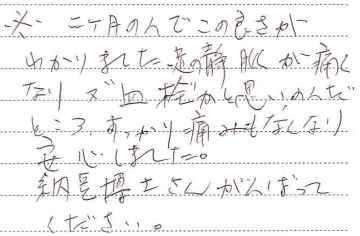 ※ 二ヶ月のんでこの良さが
わかりました。足の静脈が痛く
なり 血栓かと思いのんだ
ところ、すっかり痛みもなくなり
安心しました。
納豆博士さんがんばって
ください。